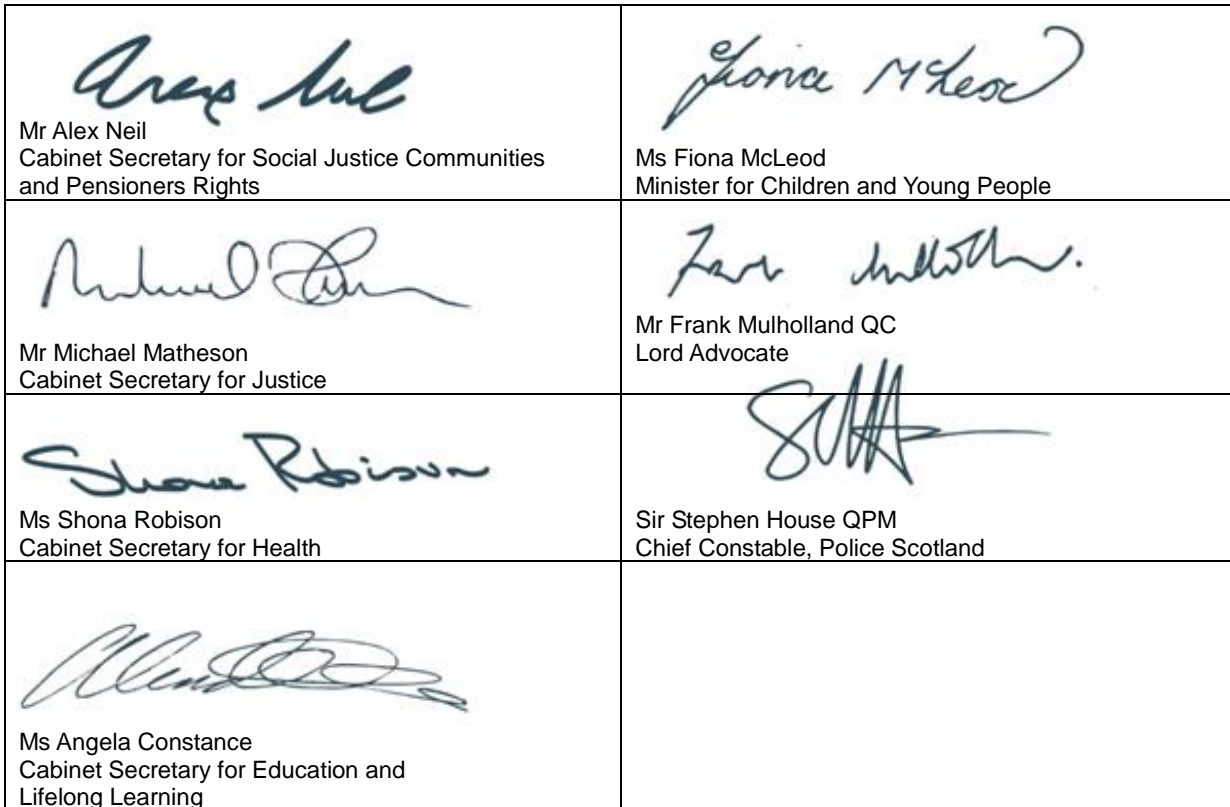 Mr Alex Neil
Cabinet Secretary for Social Justice Communities
and Pensioners Rights
Fiona McLeod
Ms Fiona McLeod
Minister for Children and Young People
Mr Michael Matheson
Cabinet Secretary for Justice
Mr Frank Mulholland QC
Lord Advocate
Shona Robison
Ms Shona Robison
Cabinet Secretary for Health
Sir Stephen House QPM
Chief Constable, Police Scotland
Ms Angela Constance
Cabinet Secretary for Education and
Lifelong Learning